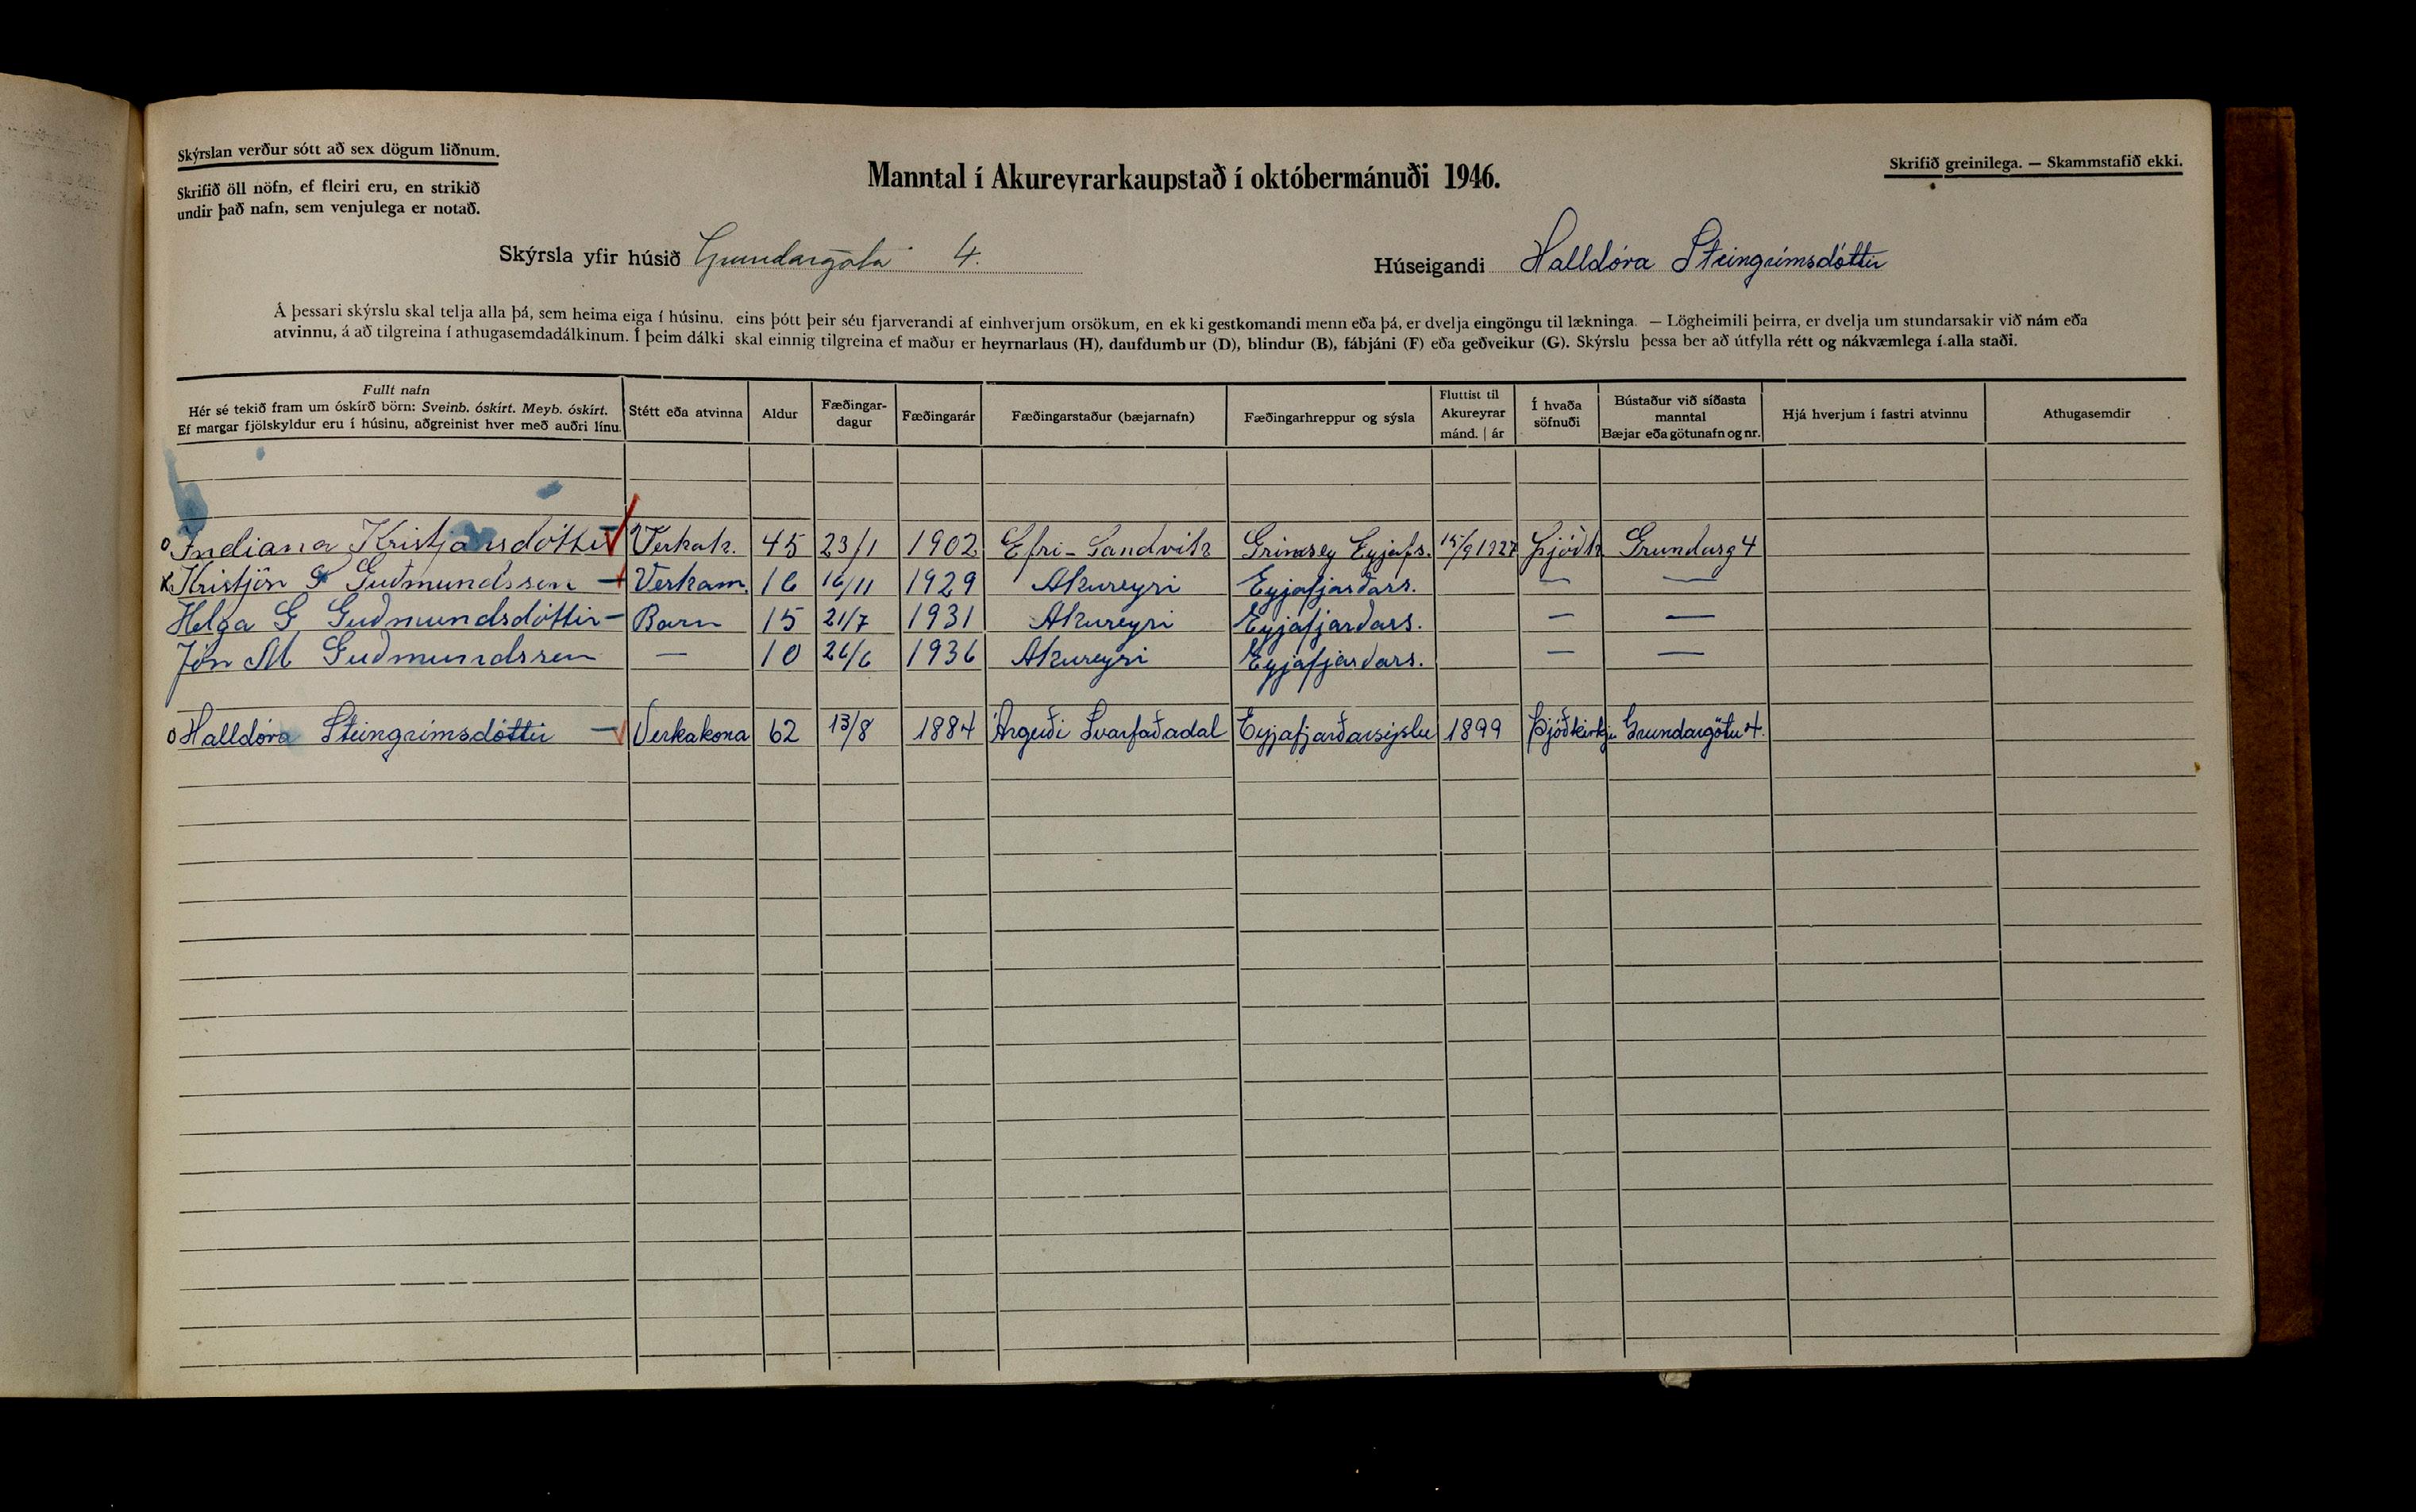 Skýrslan verður sótt að sex dögum liðnum.
Skrifið öll nöfn, ef fleiri eru, en strikið
undir það nafn, sem venjulega er notað.
Manntal í Akureyrarkaupstað í októbermánuði 1946.
Skrifið greinilega. — Skammstafið ekki.
Skýrsla yfir húsið Grundargata 4.
Húseigandi Halldóra Steingrímsdóttir
Á þessari skýrslu skal telja alla þá, sem heima eiga í húsinu, eins þótt þeir séu fjarverandi af einhverjum orsökum, en ekki gestkomandi menn eða þá, er dvelja eingöngu til lækninga. — Lögheimili þeirra, er dvelja um stundarsakir við nám eða
atvinnu, á að tilgreina í athugasemdadálkinum. Í þeim dálki skal einnig tilgreina ef maður er heyrnarlaus (H), daufdumbur (D), blindur (B), fábjáni (F) eða geðveikur (G). Skýrslu þessa ber að útfylla rétt og nákvæmlega í alla staði.
Fullt nafn
Hér sé tekið fram um óskírð börn: Sveinb. óskírt. Meyb. óskírt.
Ef margar fjölskyldur eru í húsinu, aðgreinist hver með auðri línu.
Stétt eða atvinna
Aldur
Fæðingar-
dagur
Fæðingarár
Fæðingarstaður (bæjarnafn)
Fæðingarhreppur og sýsla
Fluttist til
Akureyrar
mánd. | ár
Í hvaða
söfnuði
Bústaður við síðasta
manntal
Bæjar eða götunafn og nr.
Hjá hverjum í fastri atvinnu
Athugasemdir
o Indiana Kristjánsdóttir Verkak. 45 23/1 1902 Efri-Sandvík Grímsey Eyjafs. 15/9 1927 Þjóðk Grundarg 4
x Kristján S Guðmundsson — Verkam. 16 16/11 1929 Akureyri Eyjafjarðars. — —
Helga G Guðmundsdóttir — Barn 15 21/7 1931 Akureyri Eyjafjarðars. — —
Jón M Guðmundsson — 10 26/6 1936 Akureyri Eyjafjarðars. — —
o Halldóra Steingrímsdóttir — Verkakona 62 13/8 1884 Argerði Svarfaðadal Eyjafjarðarsýslu 1899 Þjóðkirkju Grundargötu 4.